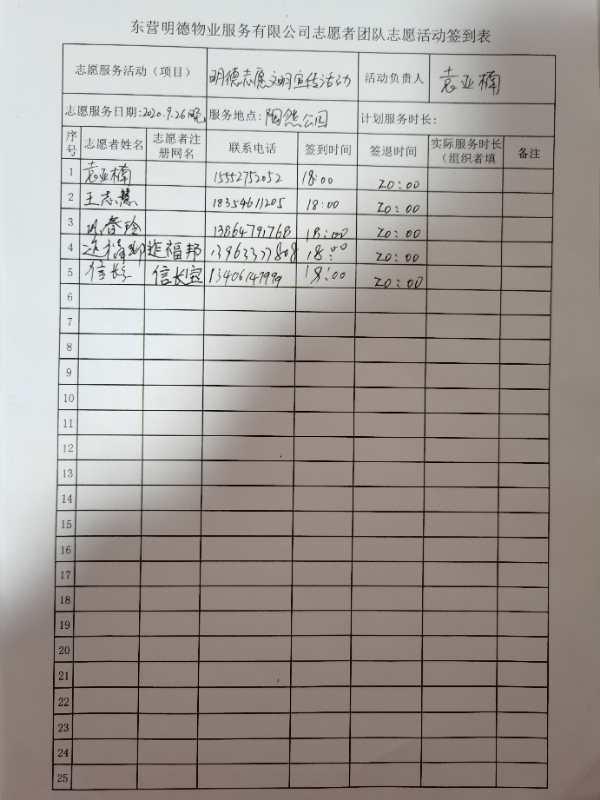 东营明德物业服务有限公司志愿者团队志愿活动签到表
志愿服务活动（项目） 明德志愿文明宣传活动 活动负责人 袁亚楠
志愿服务日期:2020.9.26晚 服务地点: 陶然公园 计划服务时长:
序号 志愿者姓名 志愿者注册网名 联系电话 签到时间 签退时间 实际服务时长(组织者填 备注
1 袁亚楠 15552752052 18:00 20:00
2 王志慧 18354611205 18:00 20:00
3 春玲 13864791768 18:00 20:00
4 福邦 福邦 18:00 20:00
5 信长 信长宝 13406147999 18:00 20:00
6
7
8
9
10
11
12
13
14
15
16
17
18
19
20
21
22
23
24
25